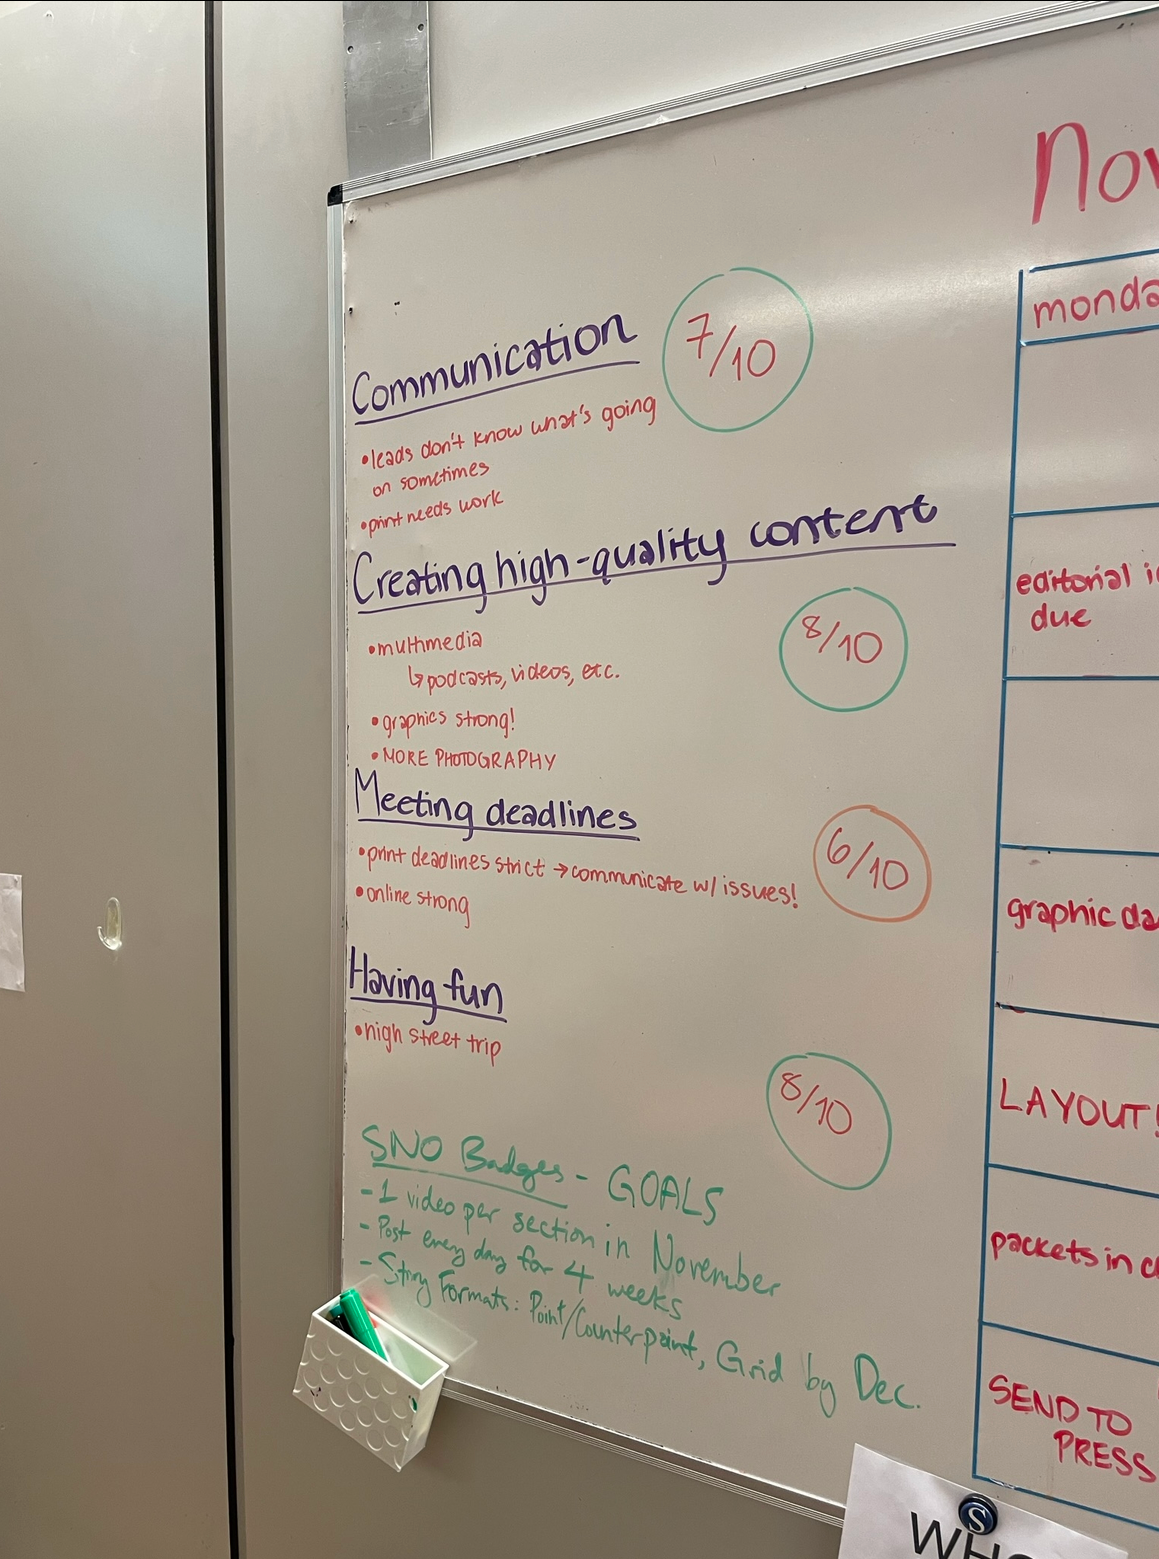 Communication
7/10
•leads don't know what's going
on sometimes
•print needs work
Creating high-quality content
8/10
•multimedia
↳podcasts, videos, etc.
•graphics strong!
•MORE PHOTOGRAPHY
Meeting deadlines
6/10
•print deadlines strict →communicate w/ issues!
•online strong
Having fun
•high street trip
8/10
SNO Badges - GOALS
-1 video per section in November
-Post every day for 4 weeks
-Story Formats: Point/Counterpoint, Grid by Dec.
Nov
monda
editorial i
due
graphic da
LAYOUT!
packets in c
SEND TO
PRESS
S
WHO